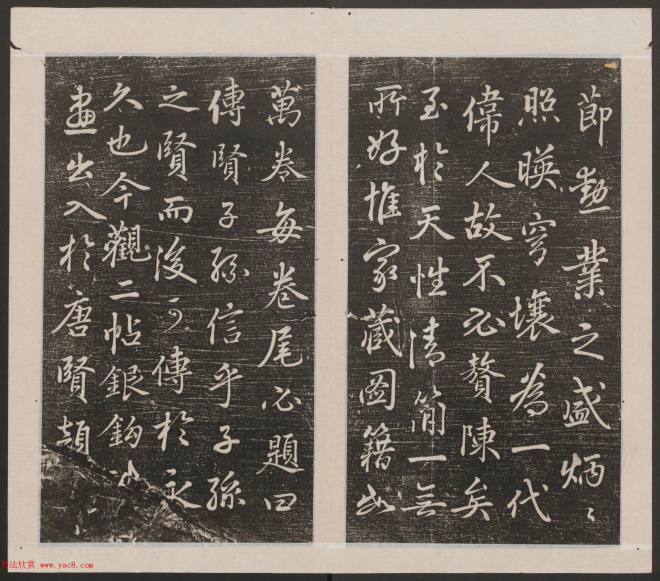 節勳業之盛炳〻
照暎穹壤為一代
偉人故不必贅陳矣
至於天性清簡一無
所好惟家藏圖籍數
萬卷每卷尾必題曰
傳賢子孫信乎子孫
之賢而後可傳於永
久也今觀二帖銀鉤
畫出入於唐賢顛
书法欣赏 www.yac8.com